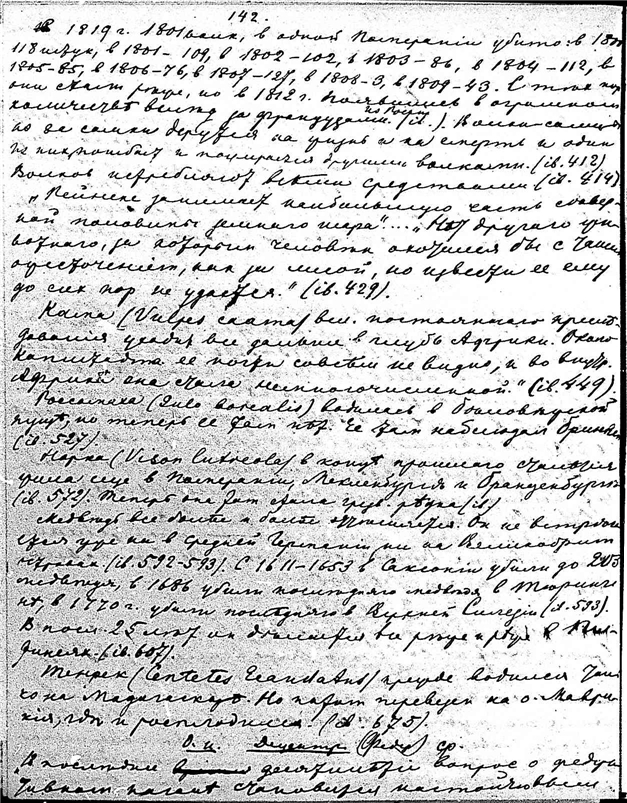 142.
В 1819 г. 1801 волк, в одной Померании убито: в 1800
118 штук, в 1801 – 109, в 1802 – 102, в 1803 – 86, в 1804 – 112, в
1805 – 85, в 1806 – 76, в 1807 – 127, в 1808 – 3, в 1809 – 43.
они реже, но в 1812 г. появились в огромном
количестве вслед за французами. (ib.). Волки-самцы
из-за самки дерутся на жизнь и на смерть и один
и пожирался другими волками. (ib. 412)
Волков истребляют всеми средствами (ib. 414)
„Рейнеке занимает наибольшую часть север-
ной половины земного шара".... „Нѣт другого жи-
вотного, за которым человек охотился бы с таким
ожесточением, как за лисой, но извести ее ему
до сих пор не удается." (ib. 429).
Кама (Vulpes caama) всл. постоянного пресле-
дования уходит все дальше в глубь Африки. Около
Капштадта ее почти совсем не видно, и во внутр.
Африке она стала немногочисленной." (ib. 449).
Россомаха (Gulo borealis) водилась в беловежской
пуще, но теперь ее там нѣт. Ее там наблюдал Бринкен
(ib. 527).
Норка (Vison Lutreola) в конце прошлого столетия
жила еще в Померании, Мекленбурге и Бранденбурге
(ib. 572). Теперь она там стала рѣдка (ib)
Медведь все более и более оттесняется. Он не встреча-
ется уже ни в средней Германии, ни на Великобрит.
островах (ib. 592-593). С 1611-1653 в Саксонии убили до 203
медведя, в 1686 убили последнего медведя в Тюринге-
не, в 1770 г. убили последнего в Верхней Силезии (ib. 593).
В посл. 25 лет он делается все реже и реже в
(ib. 607).
Тенрек (Centetes Ecaudatus) прежде водился толь-
ко на Мадагаскаре. Но потом перевезен на о. Маври-
кия, где и расплодился. (ib. 675).
ср.
В последние десятилетия вопрос о
становился настойчивым